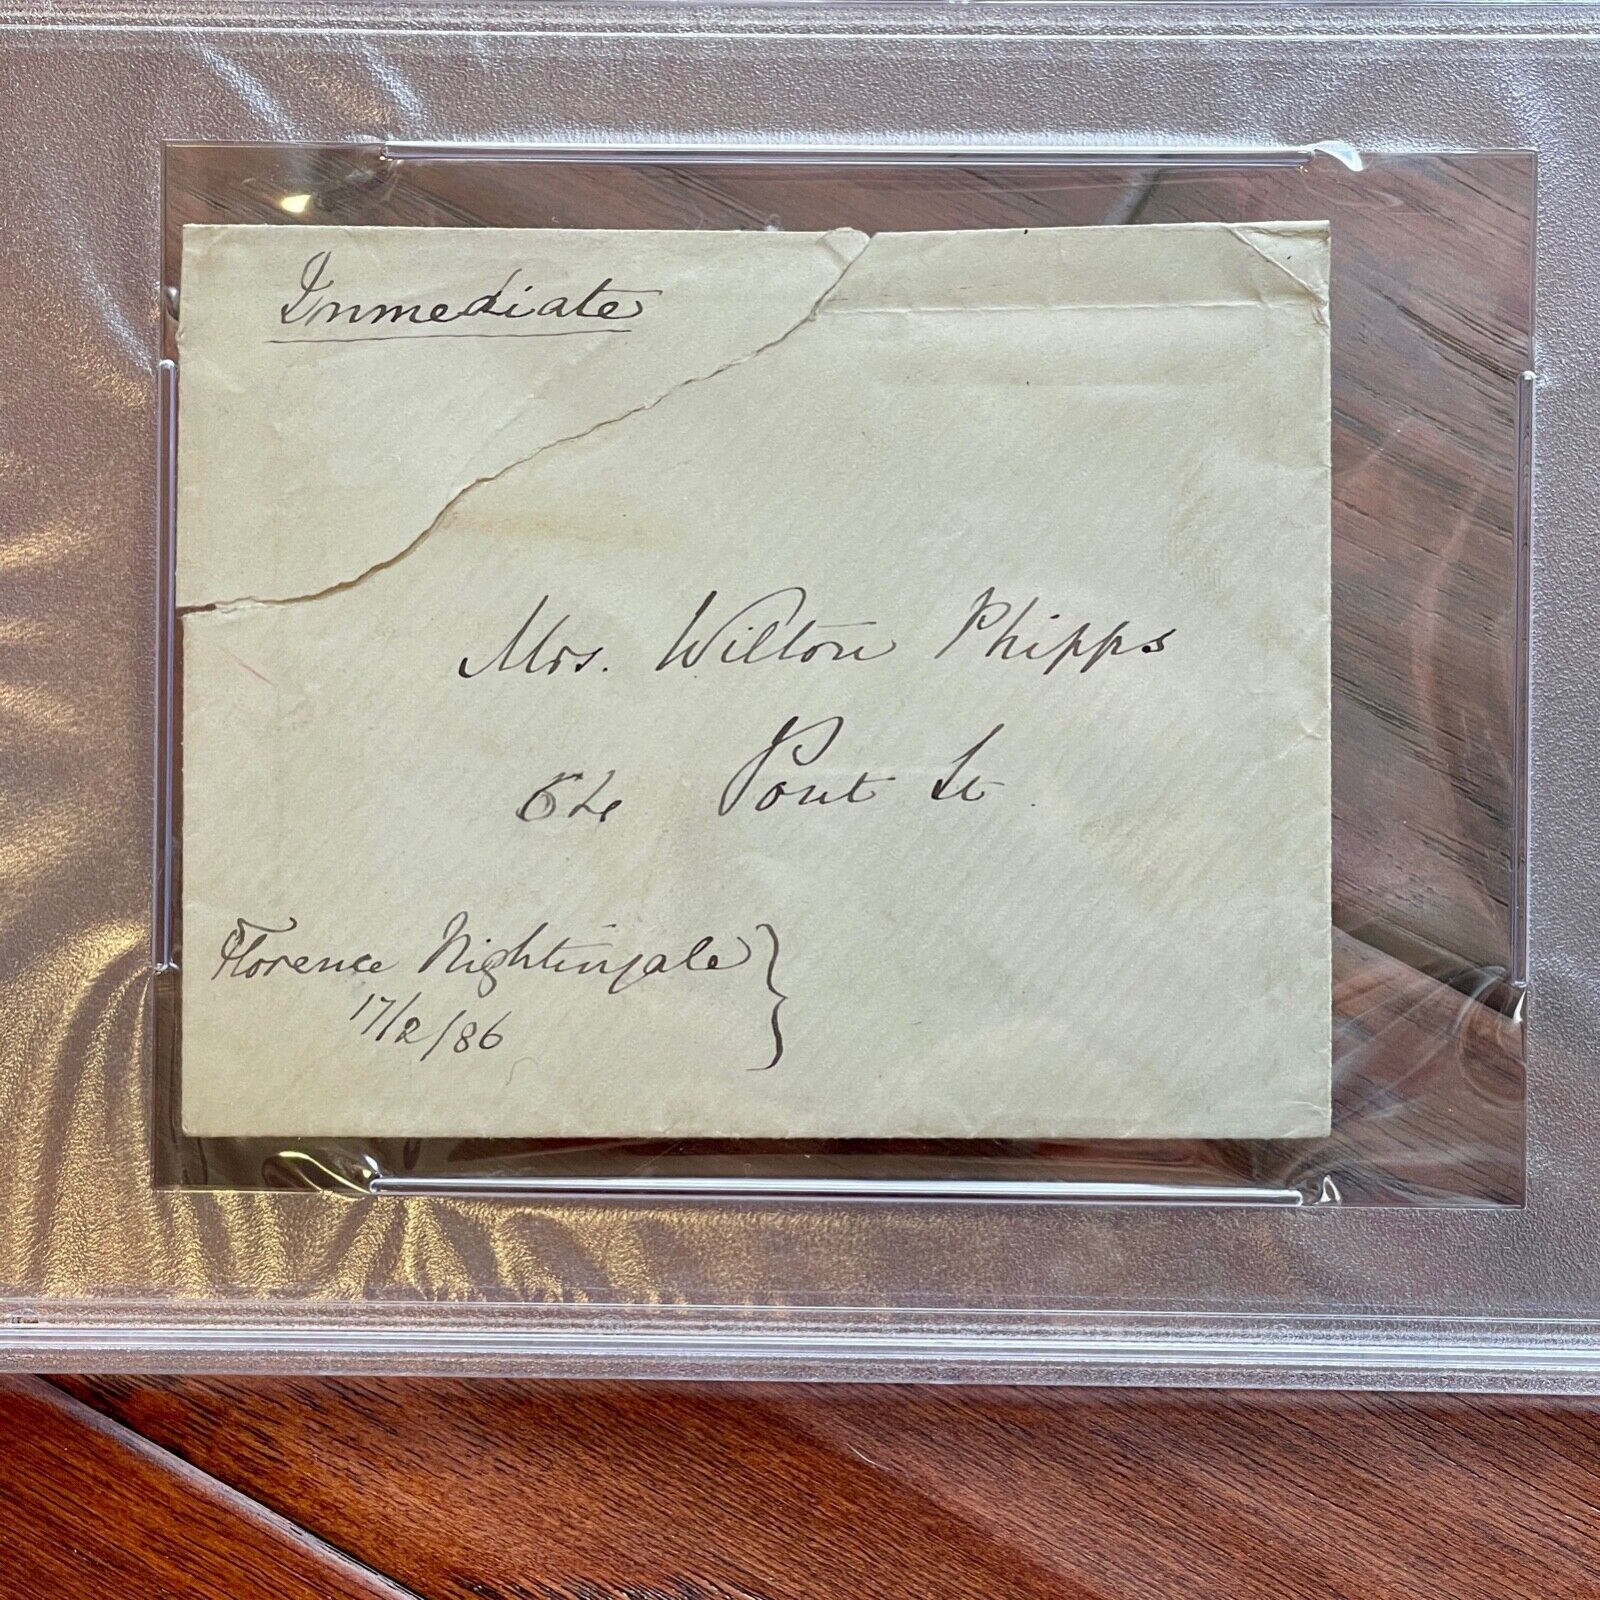 Immediate
Mrs. Wilton Phipps
64 Pont St.
Florence Nightingale
17/2/86